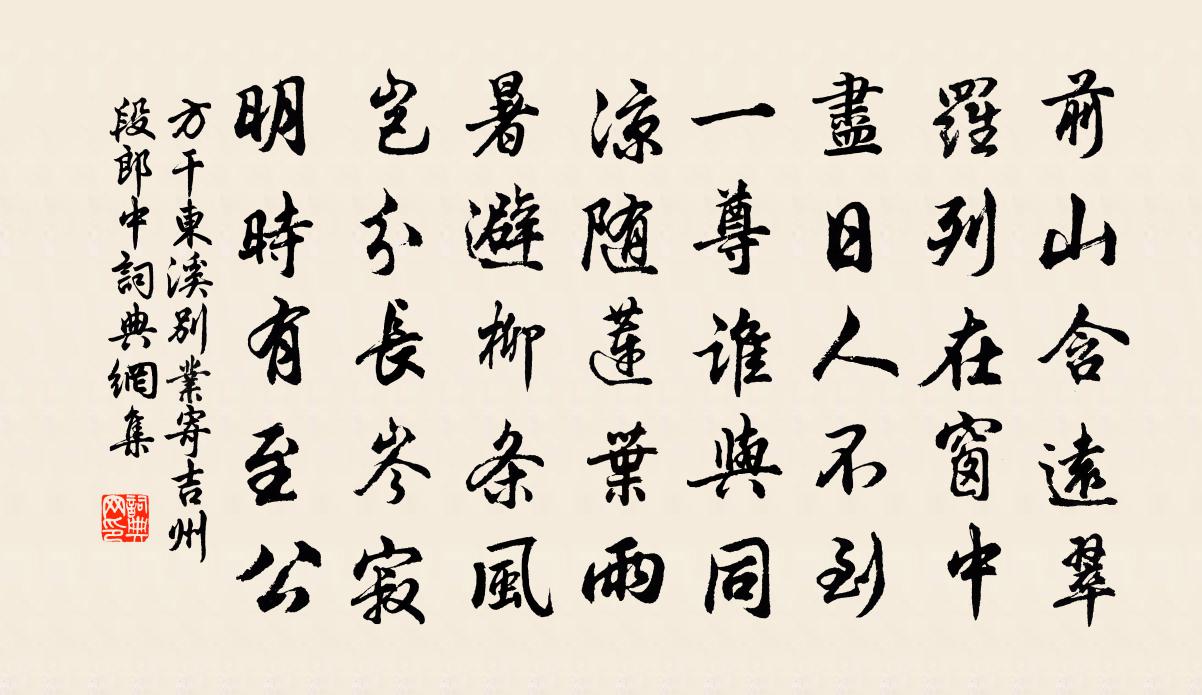 前山含遠翠
羅列在窗中
盡日人不到
一尊誰與同
涼隨蓮葉雨
暑避柳条風
豈分長岑寂
明時有至公
方干東溪別業寄吉州
段郎中詞典網集
詞典网印